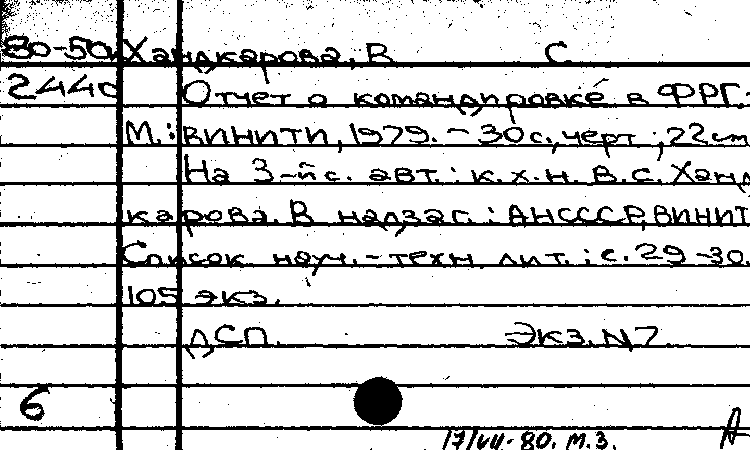 80-50 Хандкарова, В С
2440 Отчет о командировке в ФРГ.
М.: ВИНИТИ, 1979. - 30 с., черт.; 22 см
На 3-й с. авт.: к.х.н. В.С. Ханд
карова. В надзаг.: АНСССР, ВИНИТ
Список науч.-техн. лит.: с. 29-30.
105 экз.
ДСП. Экз. N7.
6
17/VII-80. М.З.